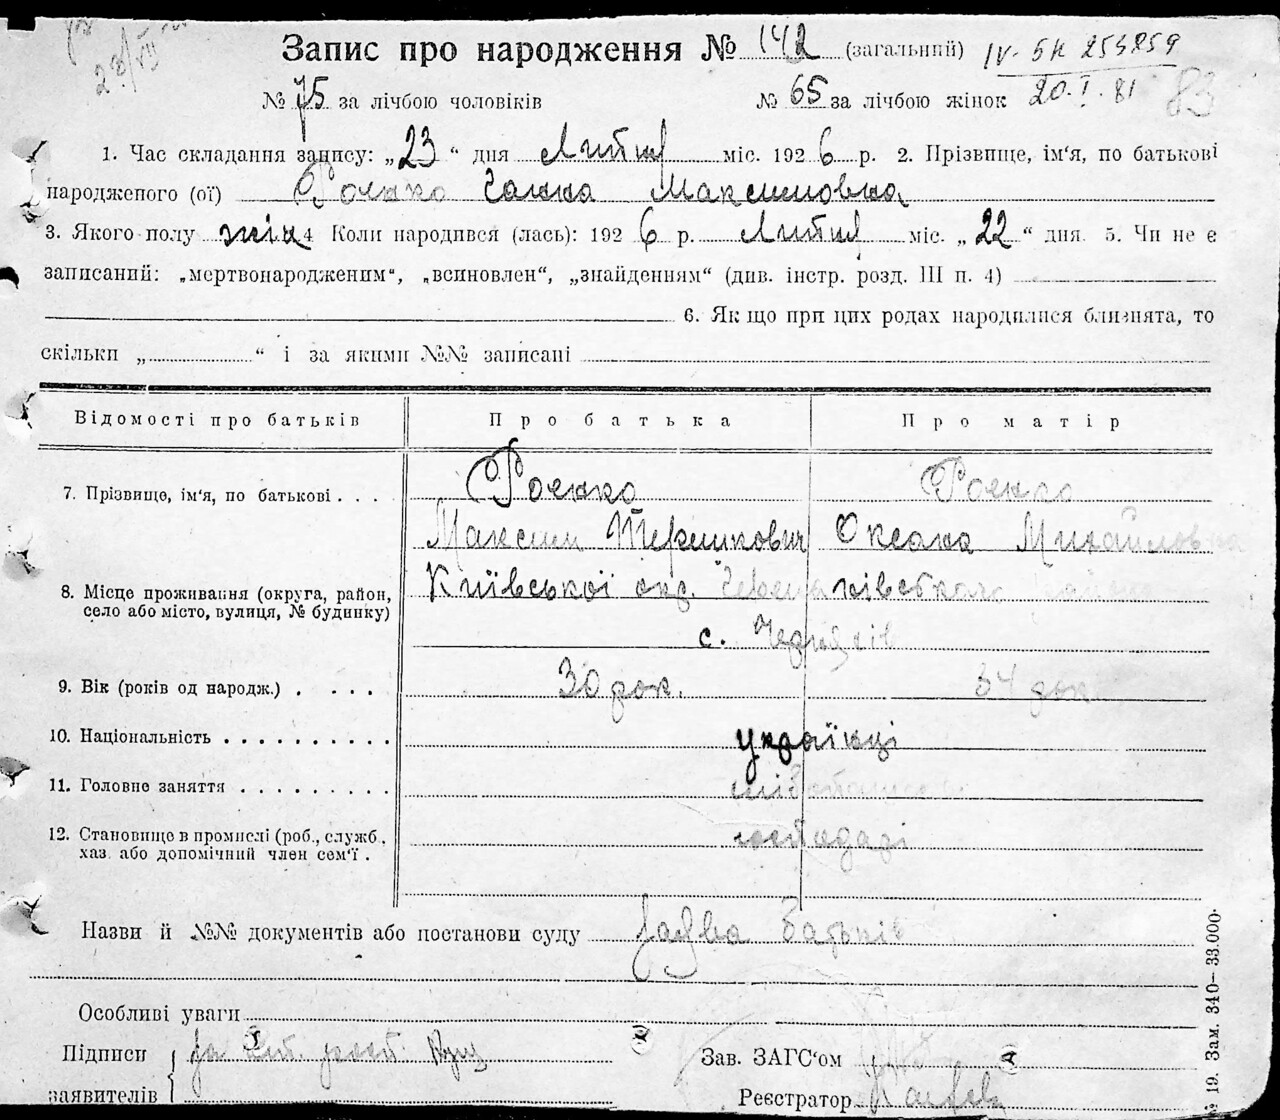 Запис про народження № 142 (загальний) IV-БК 254259
№ 75 за лічбою чоловіків № 65 за лічбою жінок 20.I.81 83
1. Час складання запису: „23“ дня Лютий міс. 1926 р. 2. Прізвище, ім'я, по батькові
народженого (ої) Роєнко Ганна Максимовна
3. Якого полу жін 4 Коли народився (лась): 1926 р. Лютий міс. „22“ дня. 5. Чи не є
записаний: „мертвонародженим“, „всиновлен“, „знайденням“ (див. інстр. розд. III п. 4)
6. Якщо при цих родах народилися близнята, то
скільки „ “ і за якими №№ записані
Відомості про батьків Про батька Про матір
7. Прізвище, ім'я, по батькові . . . Роєнко Роєнко
Максим Терешкович Оксана Михайловна
8. Місце проживання (округа, район, Київської окр.
село або місто, вулиця, № будинку) с. Черняхів
9. Вік (років од народж.) . . . . . 30 рок. 34 рок
10. Національність . . . . . . . . . . українці
11. Головне заняття . . . . . . . . .
12. Становище в промислі (роб., служб., господарі
хаз. або допомічний член сем'ї .
Назви й №№ документів або постанови суду Заява батьків
Особливі уваги
Підписи
заявителів
Зав. ЗАГС'ом
Реєстратор
№ 19. Зам. 340–33.000.